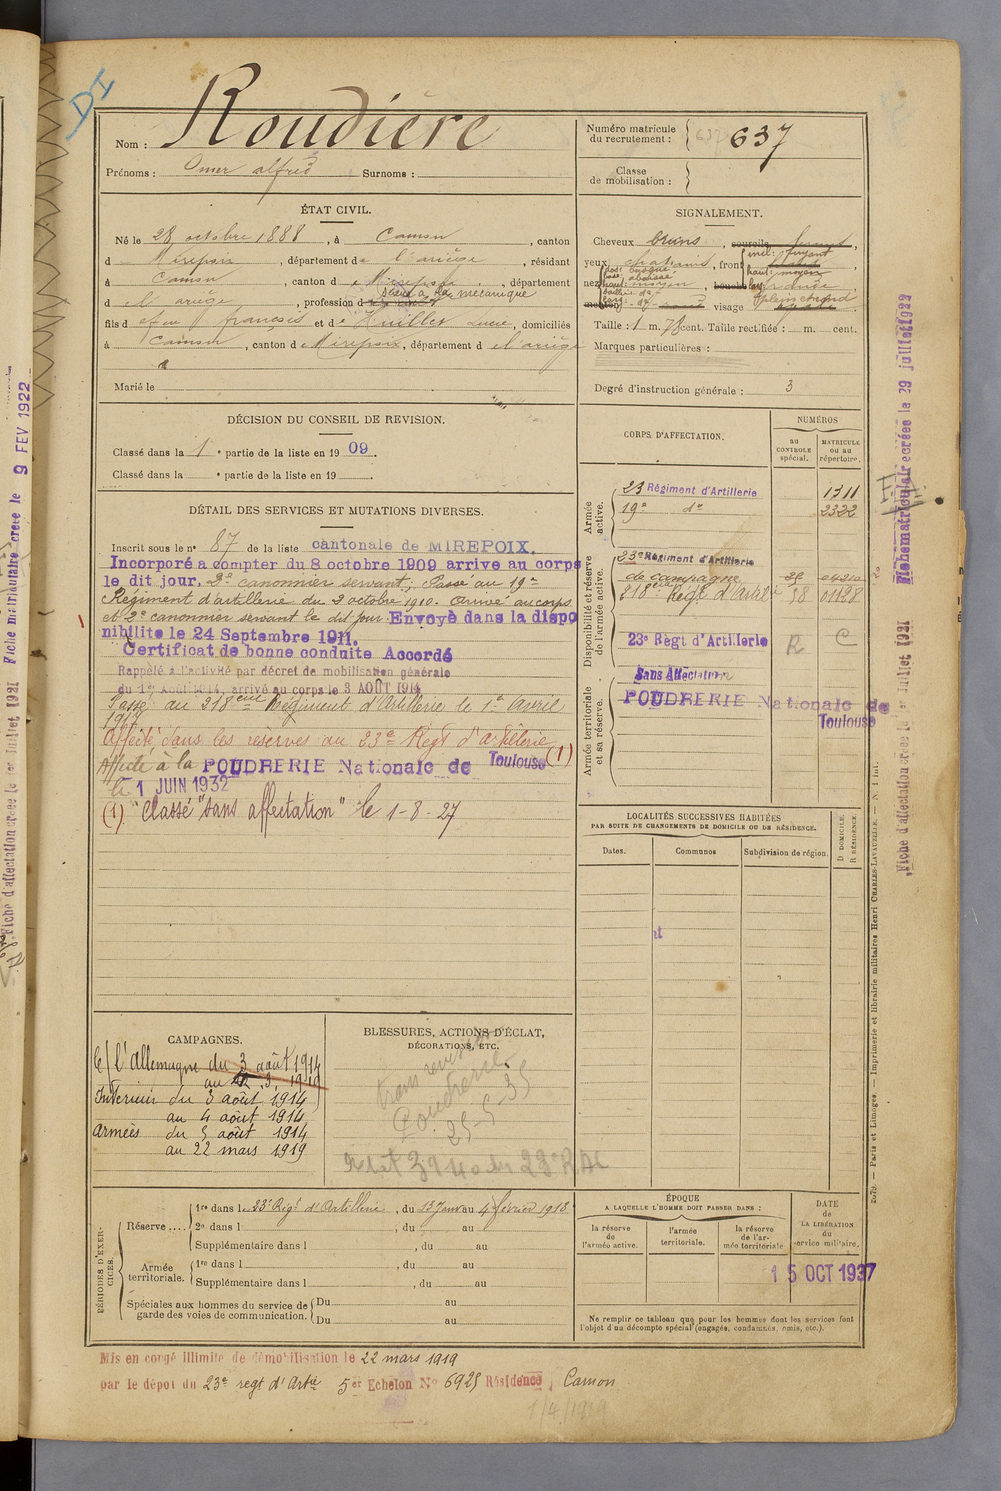 DI
Nom : Roudière
Prénoms : Omer alfred Surnoms :
Numéro matricule du recrutement : 637
Classe de mobilisation :
ÉTAT CIVIL.
Né le 28 octobre 1888, à Camon, canton
d Mirepoix, département de l'ariège, résidant
à Camon, canton de Mirepoix, département
d el ariège, profession d scieur à la mécanique
fils d françois et de Huillet, domiciliés
à Camon, canton de Mirepoix, département d el'ariège
Marié le
SIGNALEMENT.
Cheveux bruns, sourcils
yeux chatains, front incl: fuyant
haut: moyen
nez dos: busqué
base: abaissé
haut: moyen, bouche larg: réduite
menton visage plein & rond
Taille : 1 m. 78 cent. Taille rectifiée : m. cent.
Marques particulières :
Degré d'instruction générale : 3
DÉCISION DU CONSEIL DE REVISION.
Classé dans la 1e partie de la liste en 1909.
Classé dans la e partie de la liste en 19
DÉTAIL DES SERVICES ET MUTATIONS DIVERSES.
Inscrit sous le no 87 de la liste cantonale de MIREPOIX.
Incorporé a compter du 8 octobre 1909 arrive au corps
le dit jour. 2e canonnier servant; Passé au 19e
Régiment d'artillerie du 3 octobre 1910. Arrivé au corps
et 2e canonnier servant le dit jour Envoyé dans la dispo
nibilite le 24 Septembre 1911.
Certificat de bonne conduite Accordé
Rappelé à l'activité par décret de mobilisation générale
du 1er Août 1914, arrivé au corps le 3 AOÛT 1914
Passé au 218ème Régiment d'Artillerie le 1er Avril
1917
Affecté dans les réserves au 23e Régt d'artillerie (1)
Affecté à la POUDRERIE Nationale de Toulouse
le 1 JUIN 1932
(1) "Classé "sans affectation" le 1-8-27
CORPS D'AFFECTATION.
NUMÉROS
au CONTROLE spécial.
MATRICULE ou au répertoire.
Armée active.
23 Régiment d'Artillerie 1311
19e de 2322
Disponibilité et réserve de l'armée active.
23e Régiment d'Artillerie
de campagne
218e Régt d'Artill 58 01128
23e Régt d'Artillerie R C
Armée territoriale et sa réserve.
Sans Affectation
POUDRERIE Nationale de
Toulouse
LOCALITÉS SUCCESSIVES HABITÉES
PAR SUITE DE CHANGEMENTS DE DOMICILE OU DE RÉSIDENCE.
Dates. Communes Subdivision de région. D DOMICILE. R RÉSIDENCE.
CAMPAGNES.
C/ l'Allemagne du 3 août 1914
Intérieur du 3 août 1914
au 4 août 1914
Armées du 5 août 1914
au 22 mars 1919
BLESSURES, ACTIONS D'ÉCLAT,
DÉCORATIONS, ETC.
Poudrerie
25-5-35
PÉRIODES D'EXERCICES.
Réserve....
1re dans le 23e Régt d'Artillerie, du 13 Janv au 4 février 1913.
2e dans l , du au
Supplémentaire dans l , du au
Armée territoriale.
1re dans l , du au
Supplémentaire dans l , du au
Spéciales aux hommes du service de garde des voies de communication.
Du au
Du au
ÉPOQUE
A LAQUELLE L'HOMME DOIT PASSER DANS :
la réserve de l'armée active.
l'armée territoriale.
la réserve de l'armée territoriale
DATE de LA LIBÉRATION du service militaire.
15 OCT 1937
Ne remplir ce tableau que pour les hommes dont les services font
l'objet d'un décompte spécial (engagés, condamnés, omis, etc.).
Mis en congé illimité de démobilisation le 22 mars 1919
par le dépôt du 23e regt d'Artie 5er Echelon No 6925 Résidence, Camon
1/4/1919
Fiche matriculaire créée le 29 juillet 1929
Fiche d'affectation créée le 1er Juillet 1921
2079. — Paris et Limoges. — Imprimerie et librairie militaires Henri CHARLES-LAVAUZELLE.
Fiche matriculaire créée le 9 FEV 1922
Fiche d'affectation créée le 1er Juillet 1921